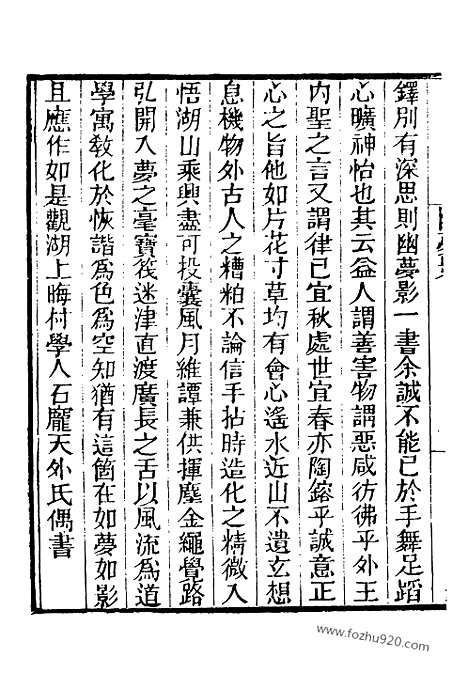 鐸別有深思則幽夢影一書余誠不能已於手舞足蹈
心曠神怡也其云益人謂善害物謂惡咸彷彿乎外王
内聖之言又謂律己宜秋處世宜春亦陶鎔乎誠意正
心之旨他如片花寸草均有會心遙水近山不遺玄想
息機物外古人之糟粕不論信手拈時造化之精微入
悟湖山乘興盡可投囊風月維譚兼供揮麈金繩覺路
弘開入夢之毫寶筏迷津直渡廣長之舌以風流爲道
學寓教化於恢諧爲色爲空知猶有這箇在如夢如影
且應作如是觀湖上晦村學人石龐天外氏偶書
www.fozhu920.com